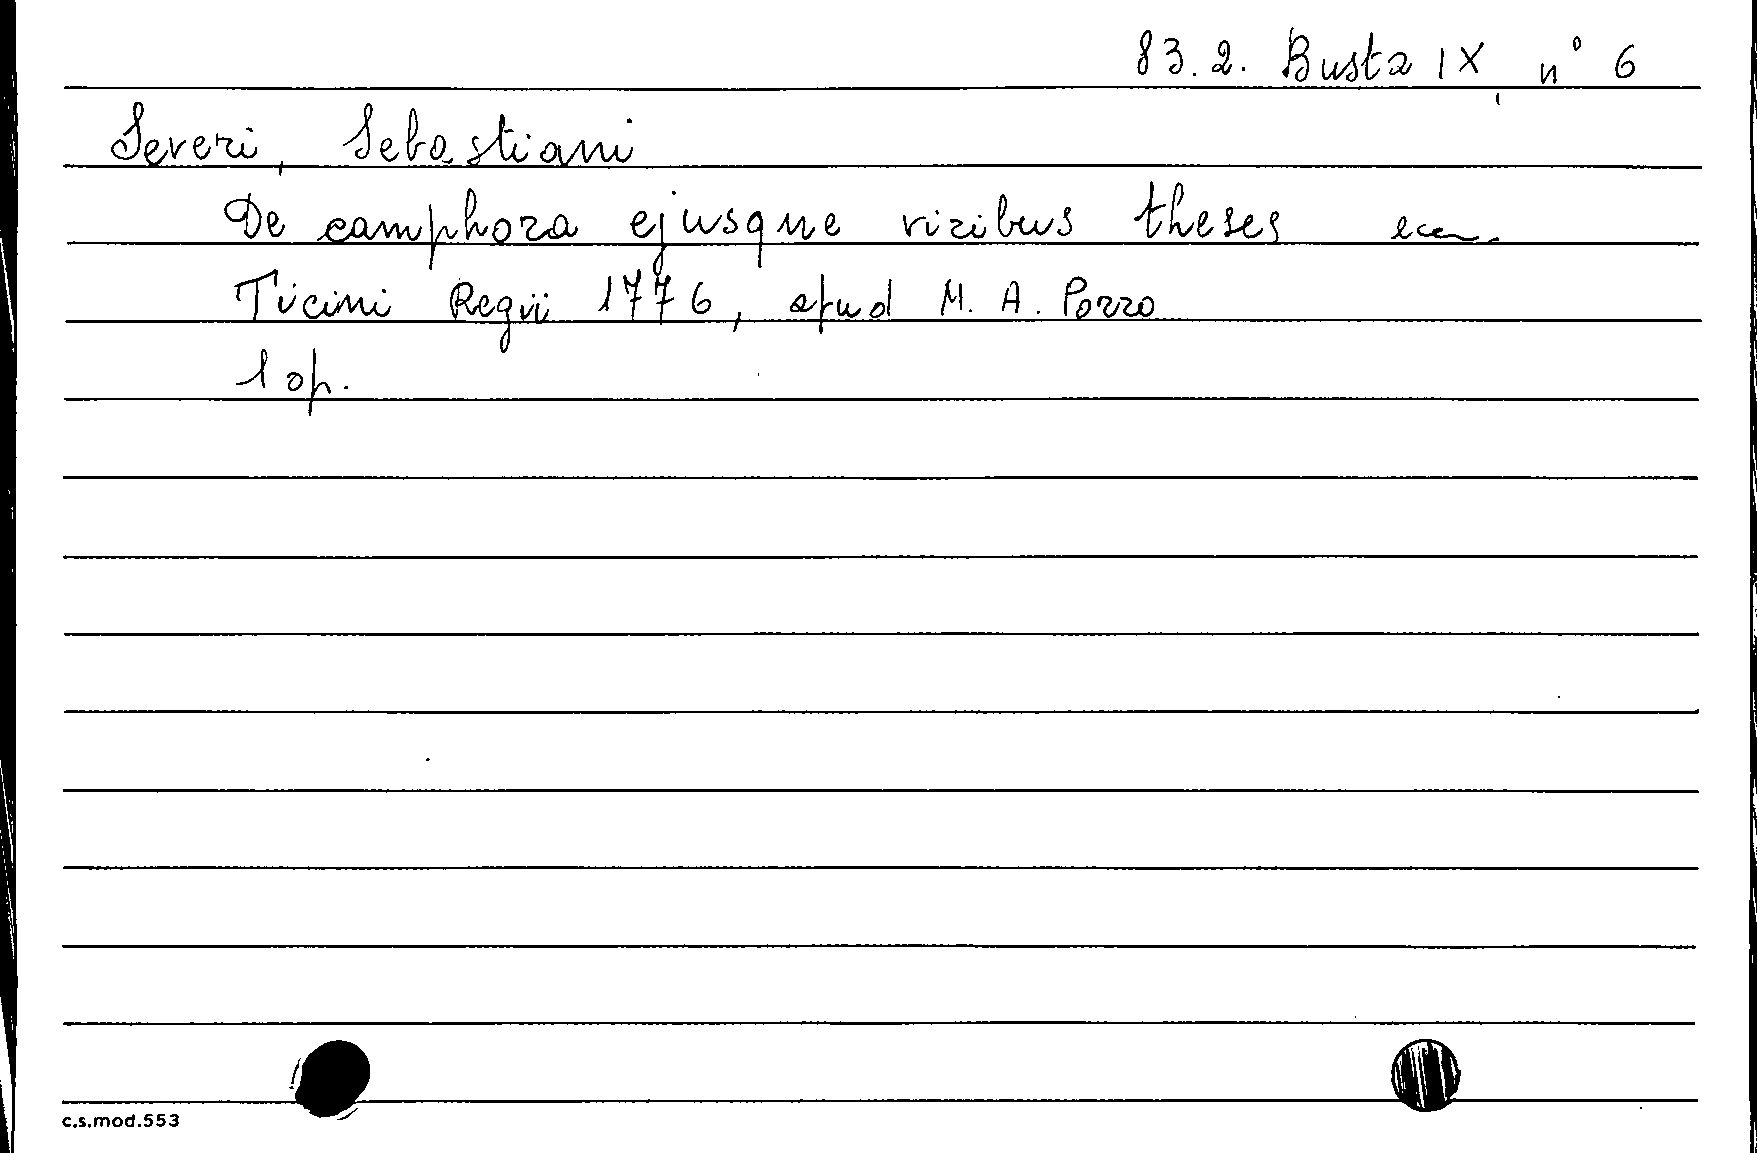 83.2. Busta IX, n° 6
Severi, Sebastiani
De camphora ejusque viribus theses ecc.
Ticini Regii 1776, apud M. A. Porro
1 op.
c.s.mod.553